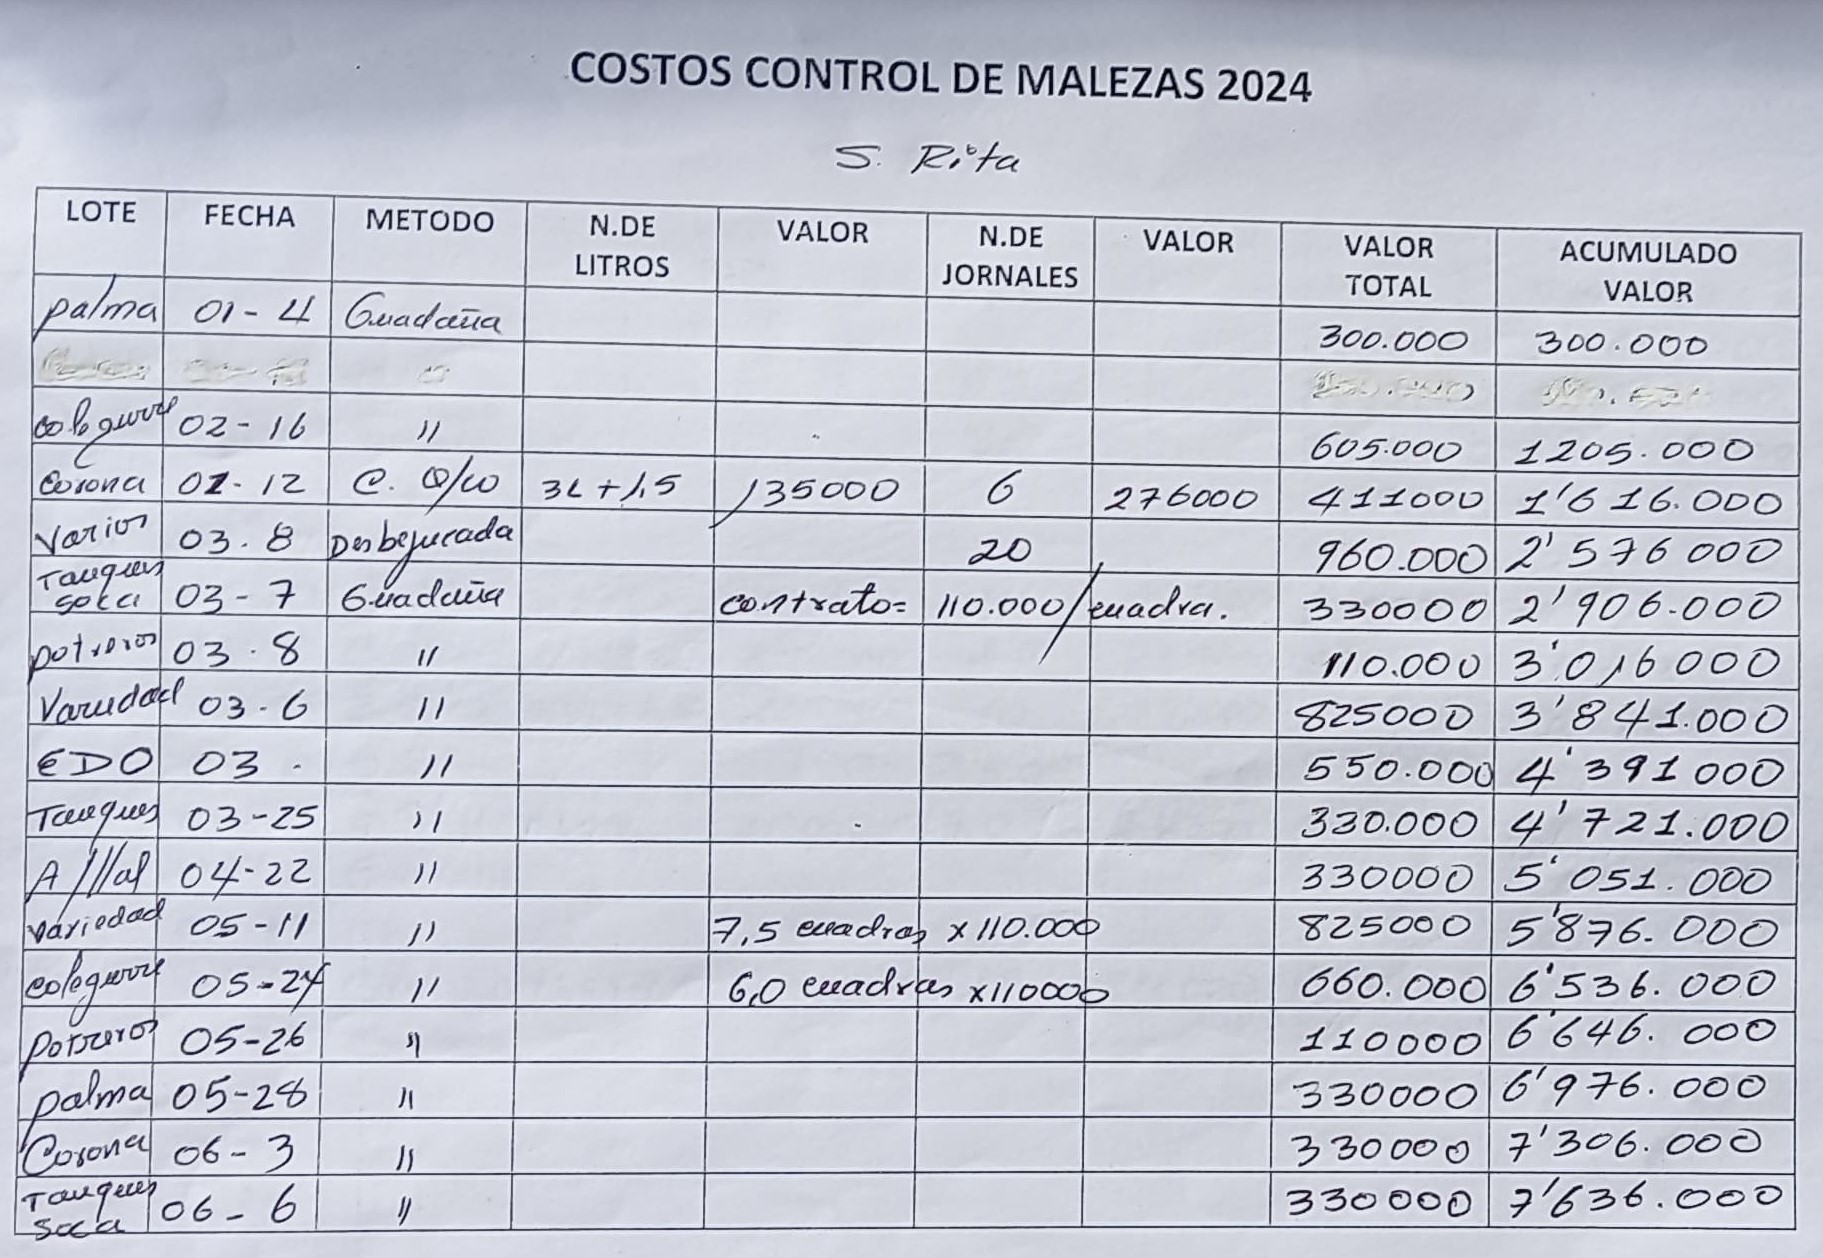 COSTOS CONTROL DE MALEZAS 2024
S. Rita
LOTE FECHA METODO N.DE LITROS VALOR N.DE JORNALES VALOR VALOR TOTAL ACUMULADO VALOR
palma 01-4 Guadaña 300.000 300.000
02-16 " 605.000 1205.000
Corona 02-12 C. 3L+1,5 135000 6 276000 411000 1'616.000
Varios 03.8 Desbejucada 20 960.000 2'576 000
Tanques soca 03-7 Guadaña contrato= 110.000/cuadra. 330000 2'906.000
potreros 03.8 " 110.000 3'016000
Variedad 03.6 " 825000 3'841.000
EDO 03. " 550.000 4'391000
Tanques 03-25 " 330.000 4'721.000
A 04-22 " 330000 5'051.000
Variedad 05-11 " 7,5 cuadras x110.000 825000 5'876.000
05-24 " 6,0 cuadras x110000 660.000 6'536.000
Potreros 05-26 " 110000 6'646.000
palma 05-28 " 330000 6'976.000
Corona 06-3 " 330000 7'306.000
Tanques soca 06-6 " 330000 7'636.000